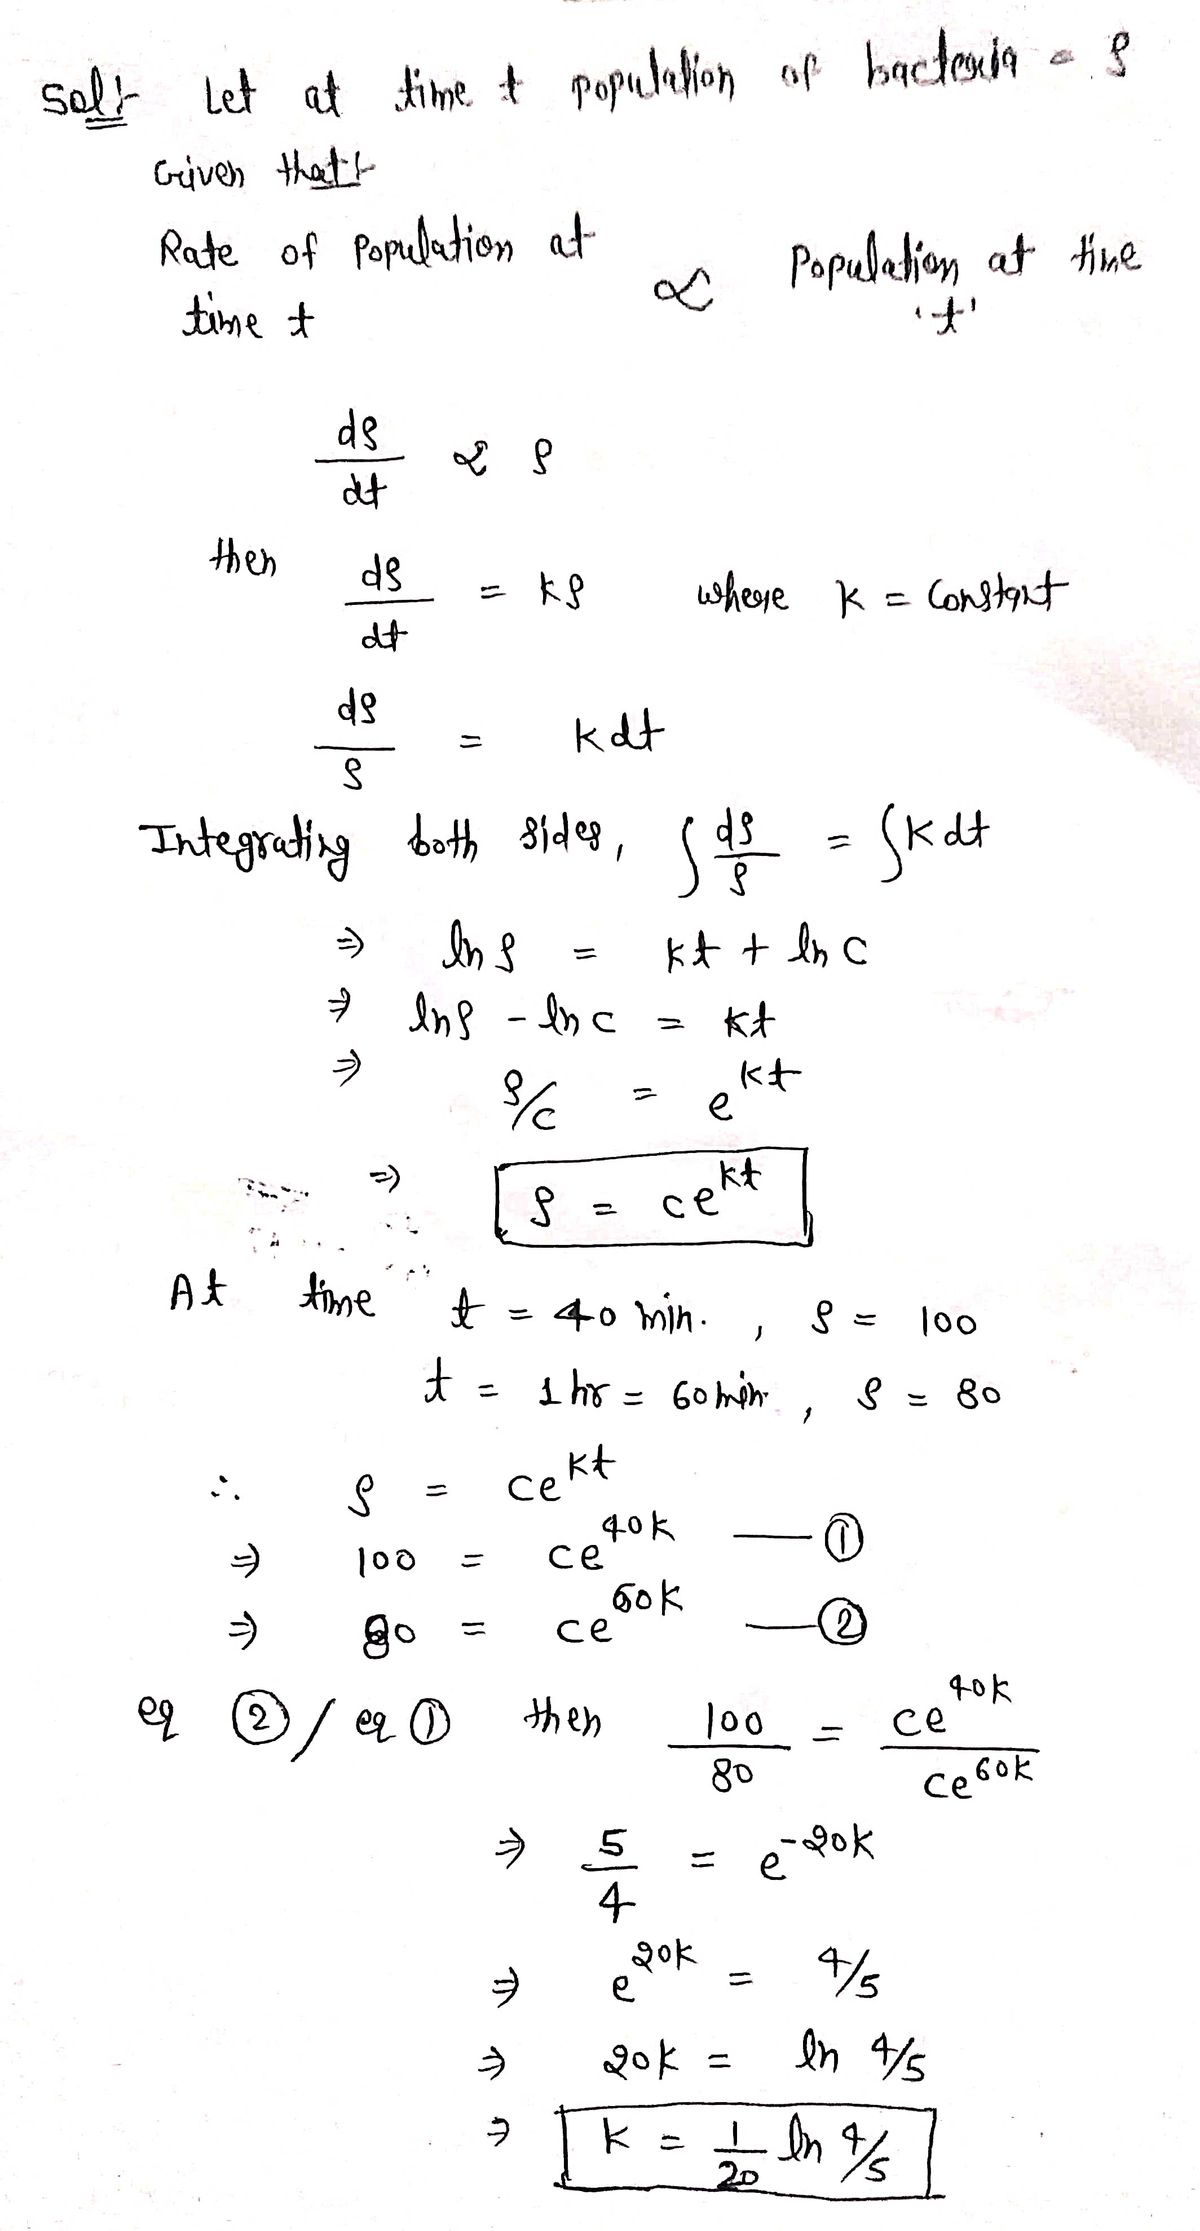 Sol:- Let at time t population of bacteria = P
Given that:-
Rate of Population at time t ∝ Population at time 't'
dP/dt ∝ P
then dP/dt = KP where K = Constant
dP/P = K dt
Integrating both sides, ∫ dP/P = ∫ K dt
⇒ ln P = Kt + ln C
⇒ ln P - ln C = Kt
⇒ P/C = e^Kt
⇒ P = Ce^Kt
At time t = 40 min. , P = 100
t = 1 hr = 60 min. , P = 80
∴ P = Ce^Kt
⇒ 100 = Ce^40K —— ①
⇒ 80 = Ce^60K —— ②
eq ② / eq ① then 100/80 = Ce^40K / Ce^60K
⇒ 5/4 = e^-20K
⇒ e^20K = 4/5
⇒ 20K = ln 4/5
⇒ K = 1/20 ln 4/5